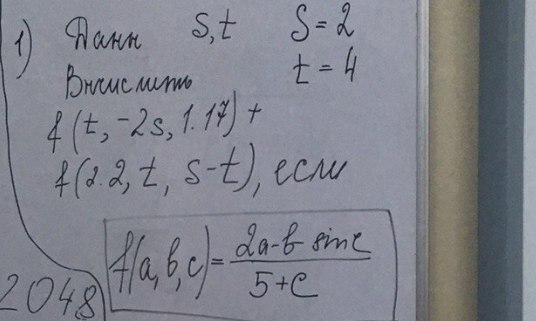 1) Данн s,t S=2
t=4
Вычислить
f(t,-2s,1.17)+
f(2.2,t,s-t), если
f(a,b,c)=\frac{2a-b sinc}{5+c}
2048